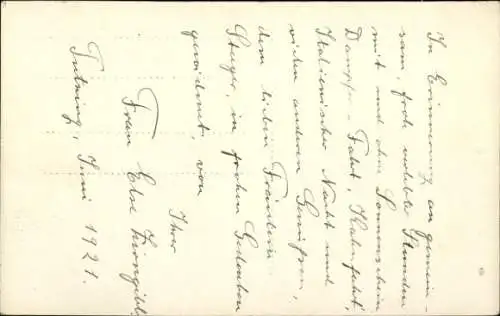 In Erinnerung an gemein-
sam, froh verlebte Stunden
mit und ohne Sonnenschein,
Dampfer-Fahrt, Kahnfahrt,
Italienischer Nacht und
vielen anderen Genüssen,
dem lieben Fräulein
Steiger, in frohem Gedenken
gewidmet, von
Ihrer
Frau Else
Tutzing, Juni 1921.